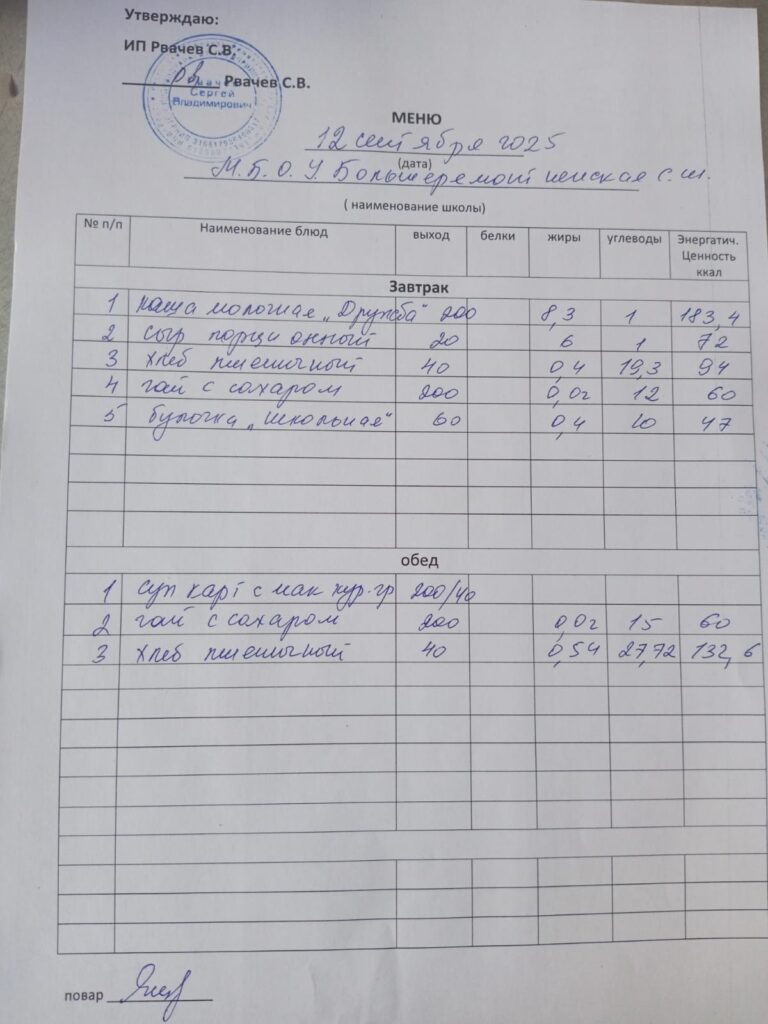 Утверждаю:
ИП Рвачев С.В.
Рвачев С.В.
Рвачев
Сергей
Владимирович
МЕНЮ
12 сентября 2025
(дата)
М.К.О.У. Большеремонтненская с.ш.
( наименование школы)
№ п/п Наименование блюд выход белки жиры углеводы Энергатич. Ценность ккал
Завтрак
1 каша молочная „Дружба“ 200 8,3 1 183,4
2 сыр порционный 20 6 1 72
3 хлеб пшеничный 40 0,4 19,3 94
4 чай с сахаром 200 0,02 12 60
5 булочка „школьная“ 60 0,4 10 47
обед
1 суп карт с мак кур.гр 200/40
2 чай с сахаром 200 0,02 15 60
3 хлеб пшеничный 40 0,54 27,72 132,6
повар